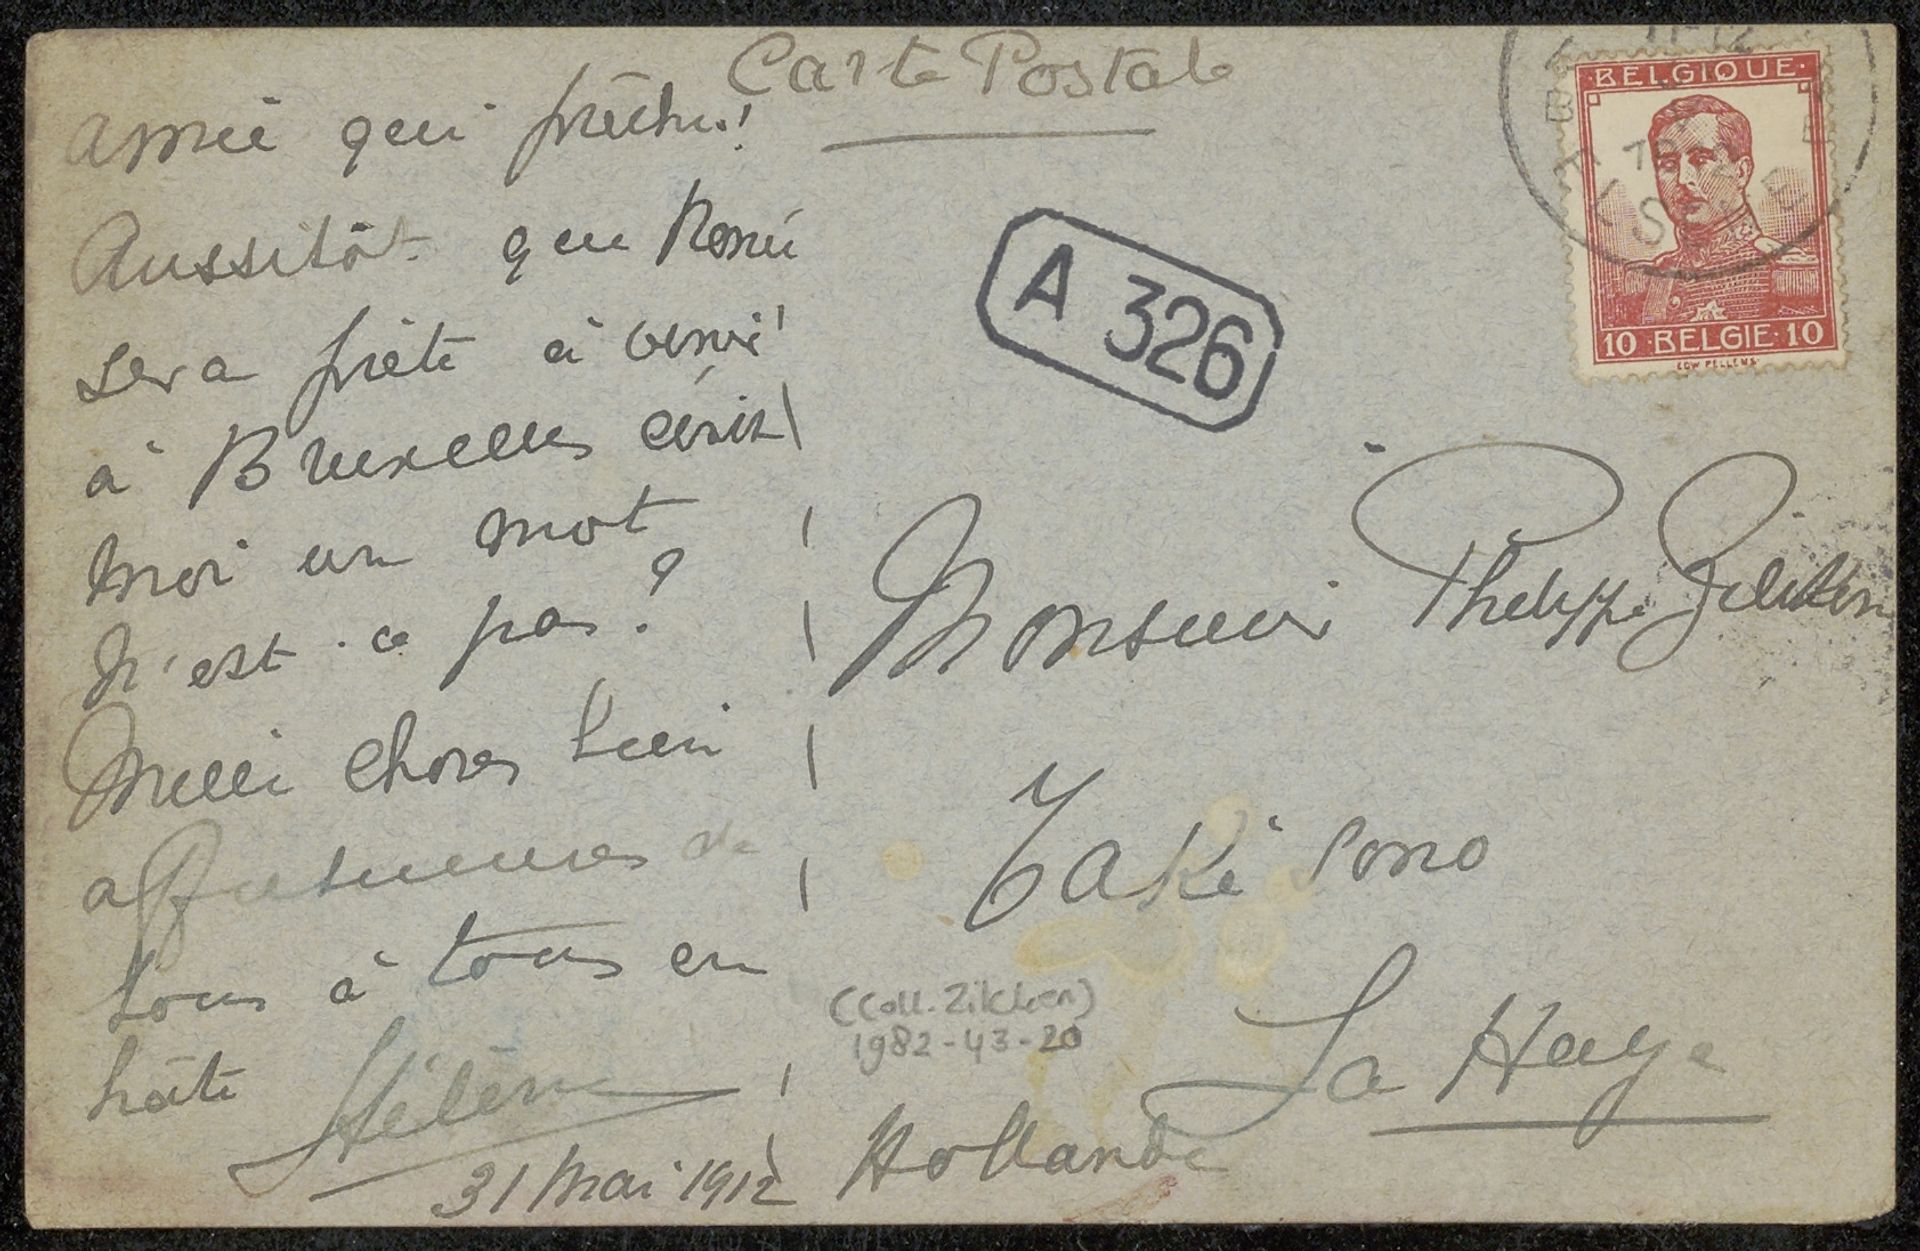 Carte Postale
Amie que prêche!
Aussitôt que Renée
sera prête à venir
à Bruxelles écris
moi un mot
N'est-ce pas?
Mille choses bien
affectueuses de
tous à tous en
hâte Hélène
31 Mai 1912
A 326
BELGIQUE
10 BELGIE 10
Monsieur Philippe Zilcken
Taki Sono
La Haye
Hollande
(Coll. Zilcken)
1982-43-20